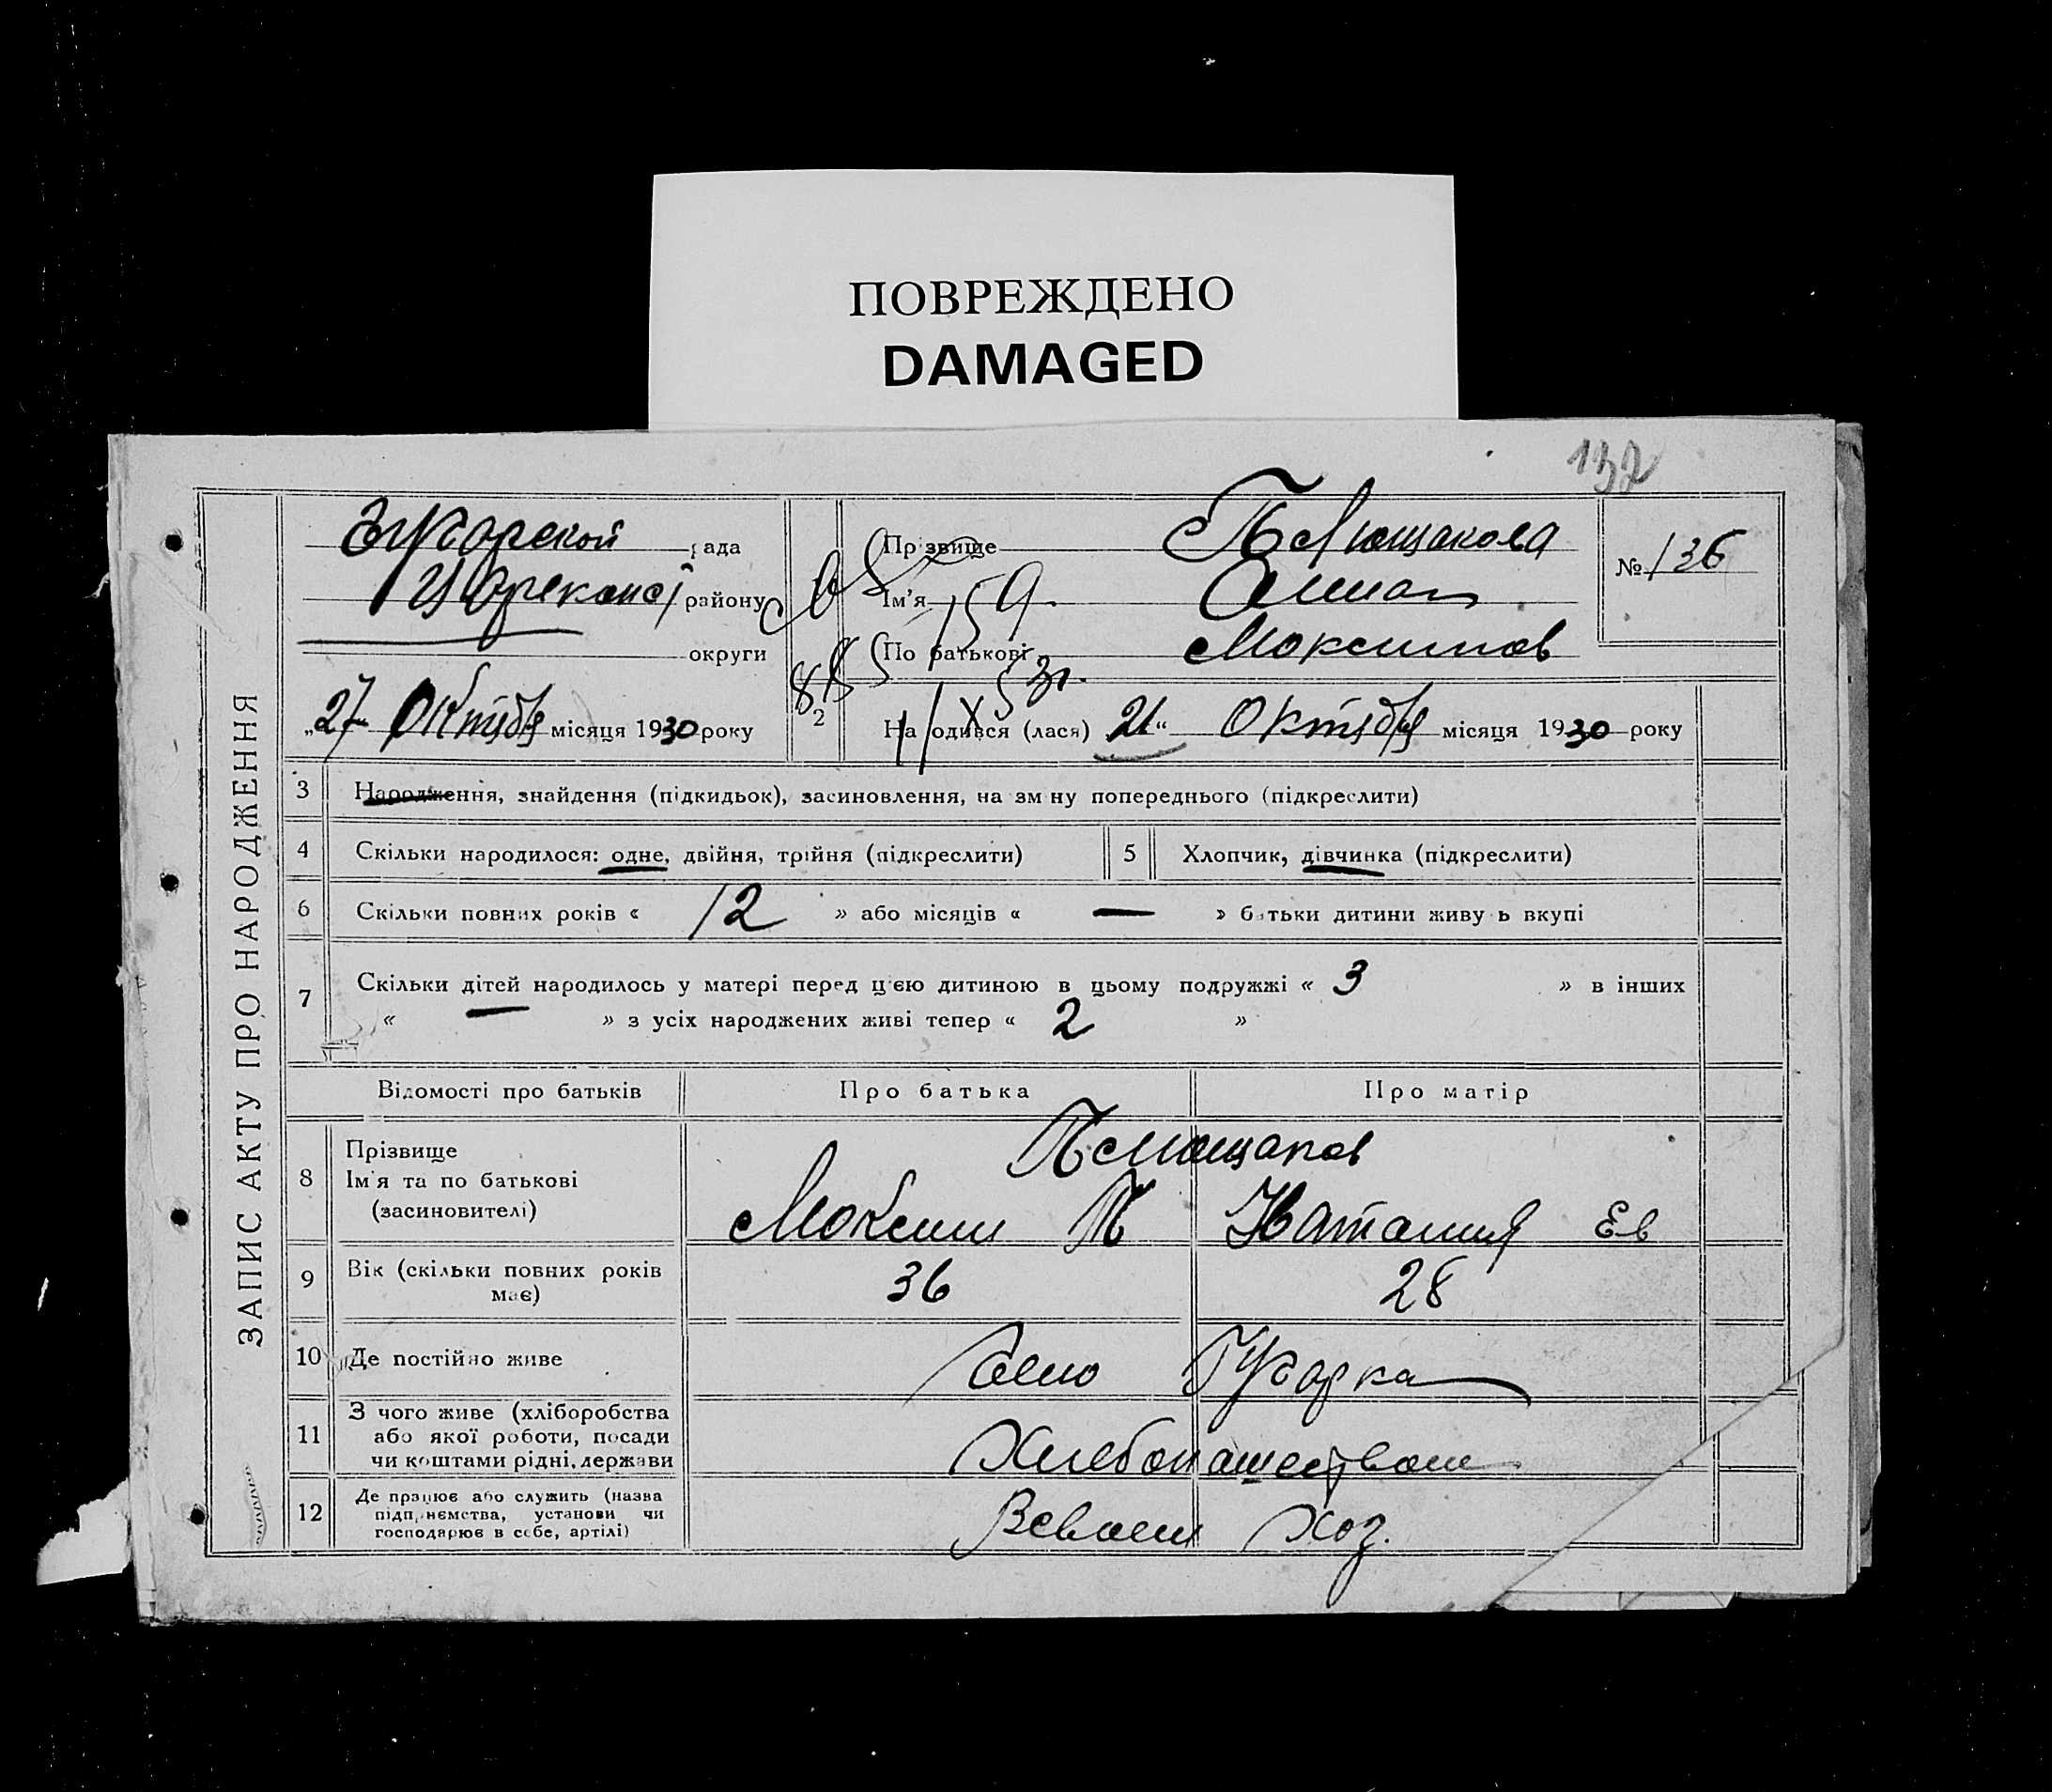 ПОВРЕЖДЕНО
DAMAGED
137
ЗАПИС АКТУ ПРО НАРОДЖЕННЯ
рада
району
округи
„27 Октября місяця 1930 року
2
Прізвище
Ім'я Анна
По батькові Максимов
№ 136
159
Народився (лася) 21“ Октября місяця 1930 року
3 Народження, знайдення (підкидьок), засиновлення, на зміну попереднього (підкреслити)
4 Скільки народилося: одне, двійня, трійня (підкреслити) 5 Хлопчик, дівчинка (підкреслити)
6 Скільки повних років « 12 » або місяців « — » батьки дитини живуть вкупі
7 Скільки дітей народилось у матері перед цією дитиною в цьому подружжі « 3 » в інших
« — » з усіх народжених живі тепер « 2 »
Відомості про батьків Про батька Про матір
8 Прізвище
Ім'я та по батькові
(засиновителі) Максим П Наталия Ев
9 Вік (скільки повних років
має) 36 28
10 Де постійно живе Село
11 З чого живе (хліборобства
або якої роботи, посади
чи коштами рідні, держави Хлебопашеством
12 Де працює або служить (назва
підприємства, установи чи
господарює в себе, артілі) Всвоем Хоз.